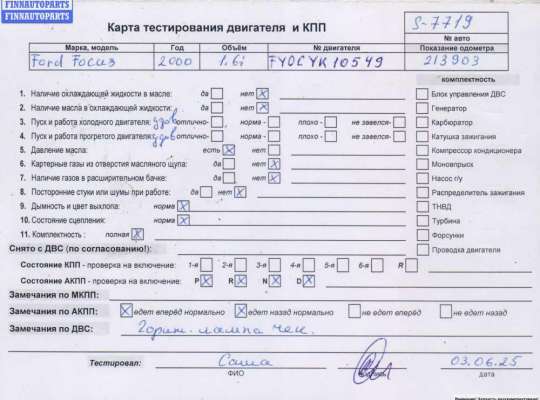 FINNAUTOPARTS
FINNAUTOPARTS
Карта тестирования двигателя и КПП
S-7719
№ авто
Марка, модель Год Объём № двигателя Показание одометра
Ford Focus 2000 1.6i FYDCYK10549 213903
комплектность
1. Наличие охлаждающей жидкости в масле: да нет
Блок управления ДВС
2. Наличие масла в охлаждающей жидкости: да нет
Генератор
3. Пуск и работа холодного двигателя: удов отлично- норма - плохо - не завелся-
Карбюратор
4. Пуск и работа прогретого двигателя: удов отлично- норма - плохо - не завелся-
Катушка зажигания
5. Давление масла: есть нет
Компрессор кондиционера
6. Картерные газы из отверстия масляного щупа: да нет
Моновпрыск
7. Наличие газов в расширительном бачке: да нет
Насос г/у
8. Посторонние стуки или шумы при работе: да нет
Распределитель зажигания
9. Дымность и цвет выхлопа: норма
ТНВД
10. Состояние сцепления: норма
Турбина
11. Комплектность : полная
Форсунки
Снято с ДВС (по согласованию!):
Проводка двигателя
Состояние КПП - проверка на включение: 1-я 2-я 3-я 4-я 5-я 6-я R
Состояние АКПП - проверка на включение: P R N D
Замечания по МКПП:
Замечания по АКПП: едет вперёд нормально едет назад нормально не едет вперёд не едет назад
Замечания по ДВС: Горит лампа чек.
Тестировал: Саша 03.06.25
ФИО дата